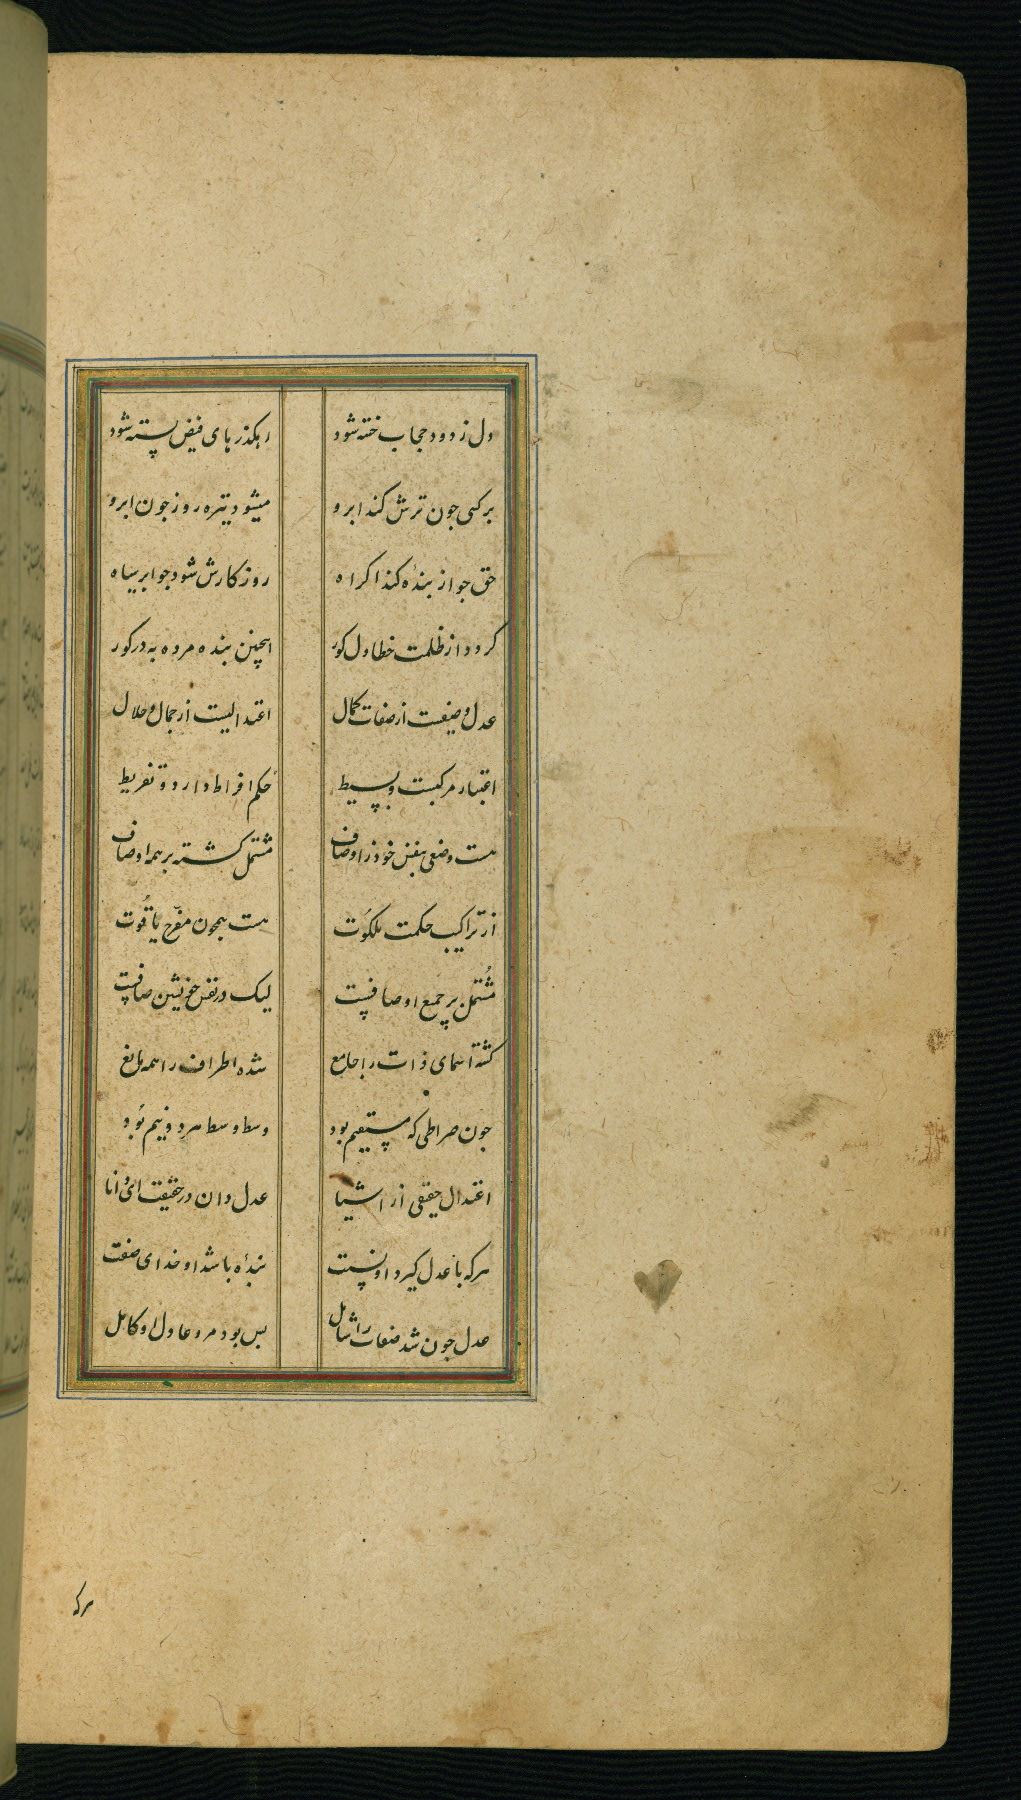 دل ز دود حجاب خسته شود
رهکذرهای فیض بسته شود
بر کسی جون ترش کند ابرو
میشود تیره روز جون ابرو
حق جو از بنده کند اکراه
روز کارش شود جو ابر سیاه
کردد از ظلمت خطا دل کور
اینچنین بنده مرده به در کور
عدل وصفیست از صفات کمال
اعتدالیست از جمال و جلال
اعتبار مرکبست و بسیط
حکم افراط دارد و تفریط
هست وصفی بنفس خود ز اوصاف
مشتمل کشته بر همه اوصاف
از تراکیب حکمت ملکوت
هست همجون مفرّح یاقوت
مشتمل بر جمیع اوصافست
لیک در نفس خویشتن صافست
کشته اسمای ذات را جامع
شده اطراف را همه مانع
جون صراطی که مستقیم بود
وسط وسط هر دو نیم بود
اعتدال حقیقی از اشیا
عدل دان در حقیقت ای دانا
هر که با عدل کیرد او نسبت
بنده باشد او خدای صفت
عدل جون شد صفات را شامل
بس بود مرد عادل او کامل
هر که